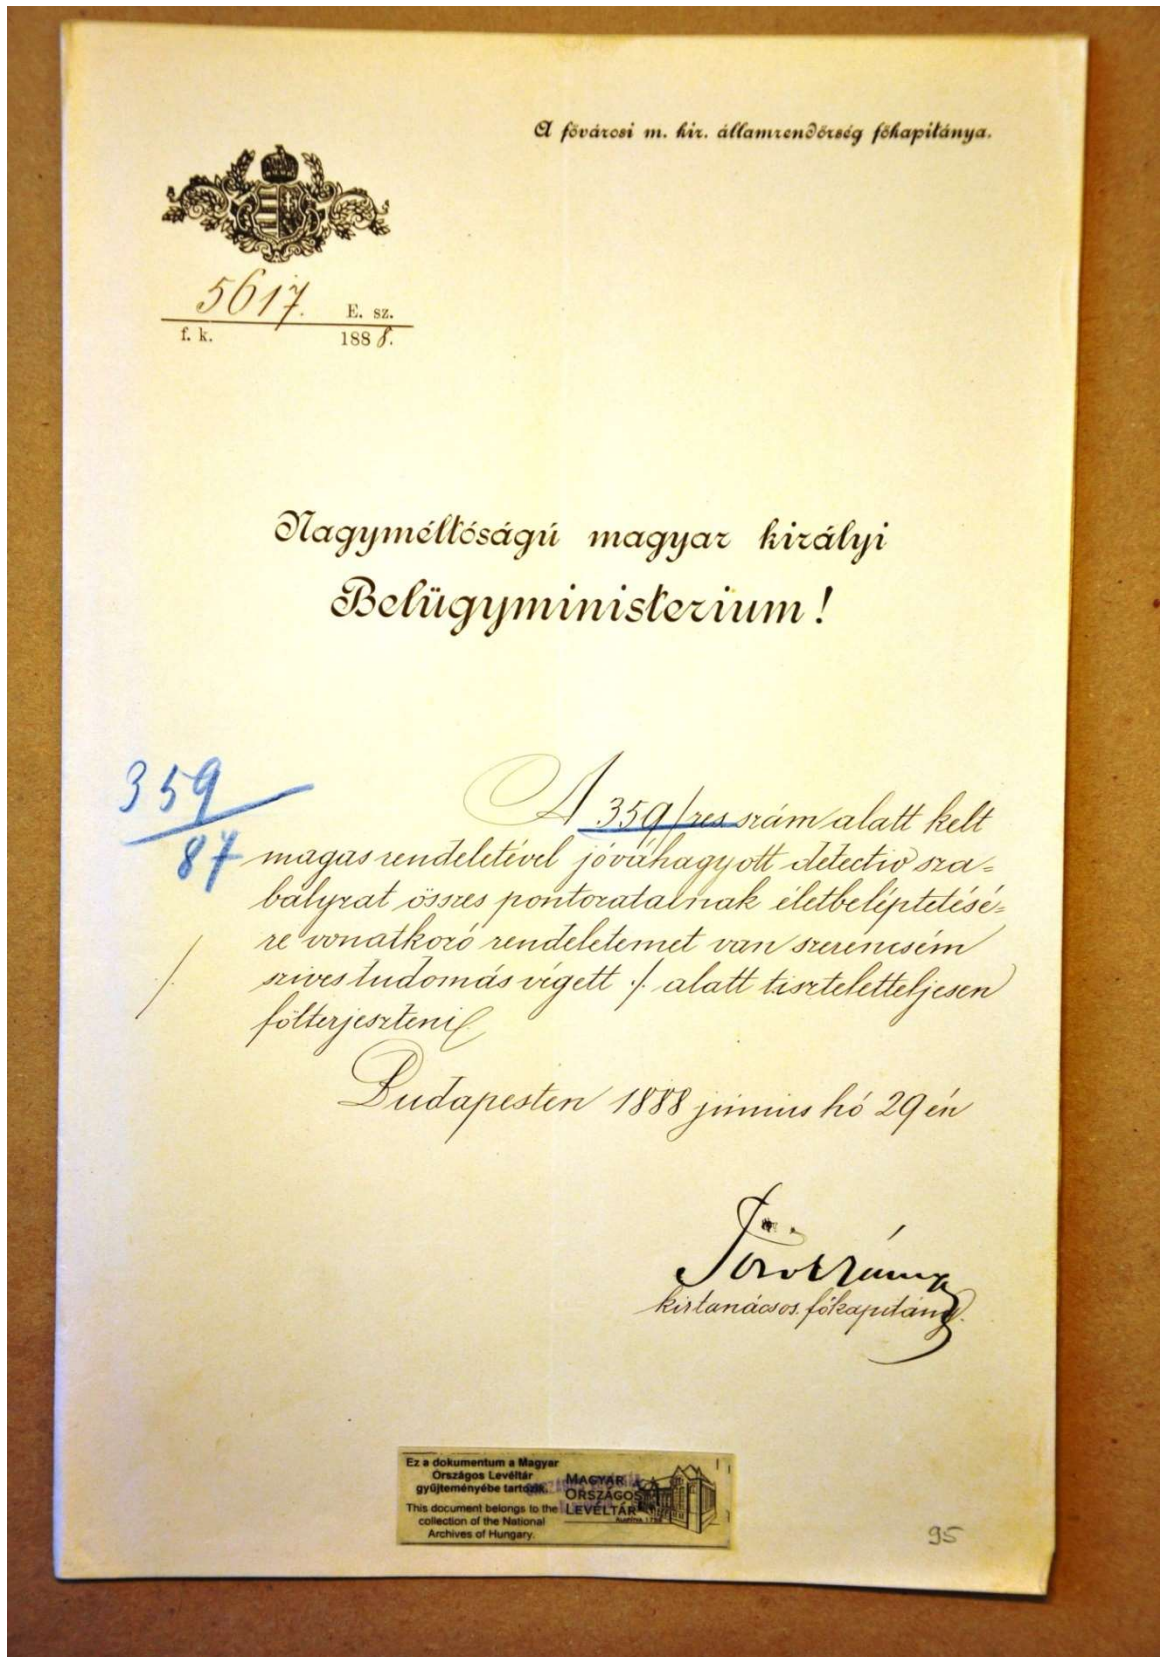 A fővárosi m. kir. államrendőrség főkapitánya.
5617. E. sz.
f. k. 1888.
Nagyméltóságú magyar királyi
Belügyministerium!
359
87
A 359/res szám alatt kelt
magas rendeletével jóváhagyott detectiv sza=
bályzat összes pontozatainak életbeléptetésé=
re vonatkozó rendeletemet van szerencsém
szives tudomás végett ·/. alatt tiszteletteljesen
fölterjeszteni
/.
Budapesten 1888 június hó 29 én
Török János
kir tanácsos. főkapitány.
Ez a dokumentum a Magyar
Országos Levéltár
gyűjteményébe tartozik.
This document belongs to the
collection of the National
Archives of Hungary.
MAGYAR
ORSZÁGOS
LEVÉLTÁR
95